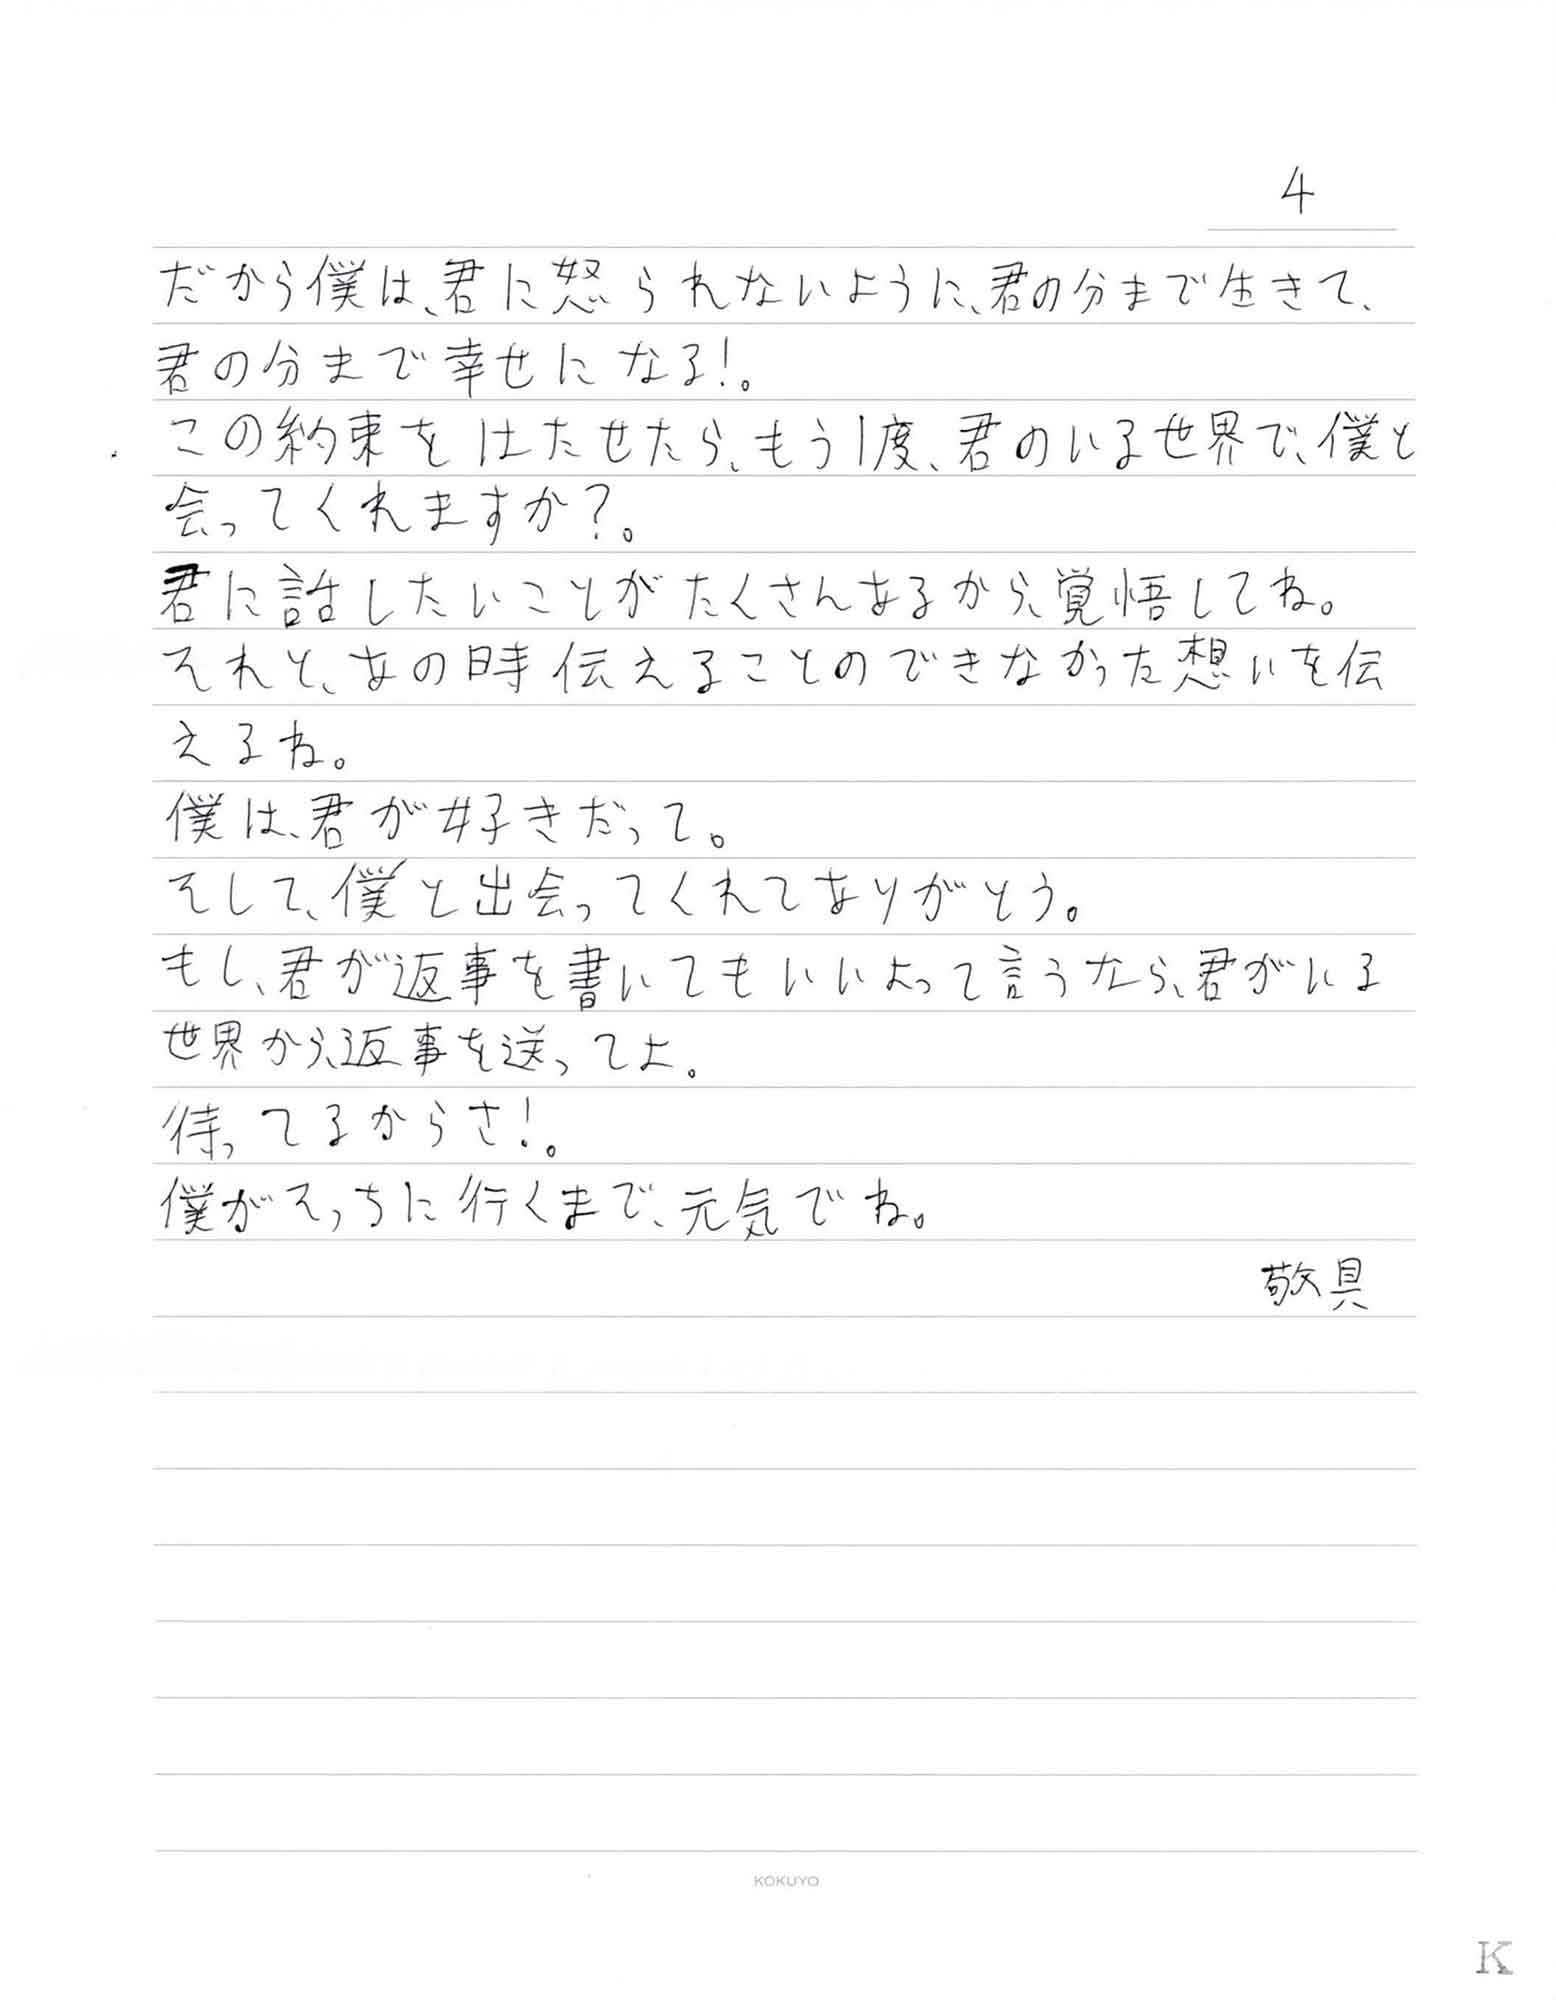 4
だから僕は、君に怒られないように、君の分まで生きて、
君の分まで幸せになる!。
この約束をはたせたら、もう1度、君のいる世界で、僕と
会ってくれますか?。
君に話したいことがたくさんあるから、覚悟してね。
それと、あの時伝えることのできなかった想いを伝
えるね。
僕は、君が好きだって。
そして、僕と出会ってくれてありがとう。
もし、君が返事を書いてもいいよって言うなら、君がいる
世界から、返事を送ってよ。
待ってるからさ!。
僕がそっちに行くまで、元気でね。
敬具
KOKUYO
K